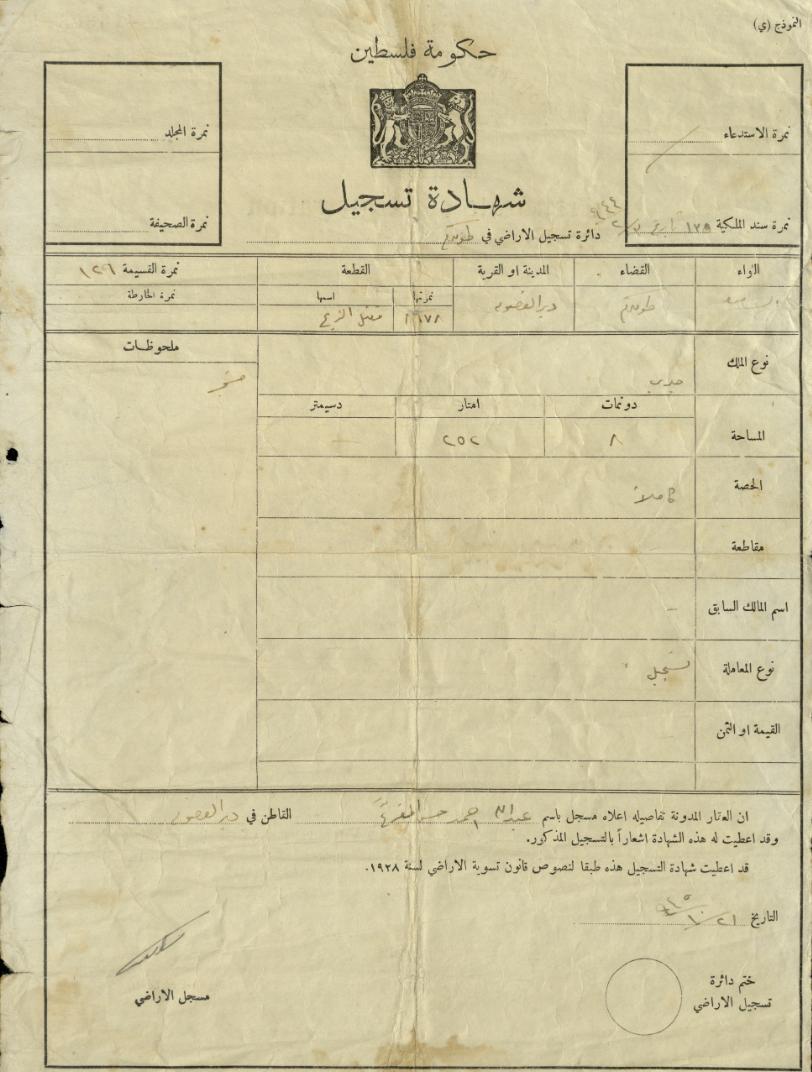 النموذج (ي)
حكومة فلسطين
نمرة الاستدعاء
نمرة المجلد
شهادة تسجيل
نمرة سند الملكية ١٣٥
نمرة الصحيفة
دائرة تسجيل الاراضي في طولكرم
الواء
القضاء
المدينة او القرية
القطعة
نمرة القسيمة ١٢٦
طولكرم
دير الغصون
نمرتها
اسمها
نمرة الخارطة
نوع الملك
ملحوظات
المساحة
دونمات
امتار
دسيمتر
٨
٢٥٢
الحصة
كاملاً
مقاطعة
اسم المالك السابق
-
نوع المعاملة
تسجيل
القيمة او الثمن
ان العقار المدونة تفاصيله اعلاه مسجل باسم عبدالله احمد حسن القاطن في دير الغصون
وقد اعطيت له هذه الشهادة اشعاراً بالتسجيل المذكور.
قد اعطيت شهادة التسجيل هذه طبقا لنصوص قانون تسوية الاراضي لسنة ١٩٢٨.
التاريخ ٢١/١٠/
ختم دائرة
تسجيل الاراضي
مسجل الاراضي